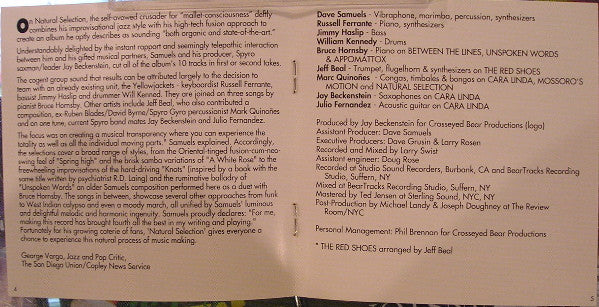 On Natural Selection, the self-avowed crusader for "mallet-consciousness" deftly
combines his improvisational jazz style with his high-tech fusion approach to
create an album he aptly describes as sounding "both organic and state-of-the-art."
Understandably delighted by the instant rapport and seemingly telepathic interaction
between him and his gifted musical partners, Samuels and his producer, Spyro
saxman/leader Jay Beckenstein, cut all of the album's 10 tracks in first or second takes.
The cogent group sound that results can be attributed largely to the decision to
team with an already existing unit, the Yellowjackets - keyboardist Russell Ferrante,
bassist Jimmy Haslip and drummer Will Kennedy. They are joined on three songs by
pianist Bruce Hornsby. Other artists include Jeff Beal, who also contributed a
composition, ex Ruben Blades/David Byrne/Spyro Gyra percussionist Mark Quiñones
and on one tune, current Spyro band mates Jay Beckenstein and Julio Fernandez.
The focus was on creating a musical transparency where you can experience the
totality as well as all the individual moving parts." Samuels explained. Accordingly,
the selections cover a broad range of styles, from the Oriental-tinged fusion-cum-neo-
swing feel of "Spring high" and the brisk samba variations of "A White Rose" to the
freewheeling improvisations of the hard-driving "Knots" (inspired by a book with the
same title written by psychiatrist R.D. Laing) and the ruminative balladry of
"Unspoken Words" an older Samuels composition performed here as a duet with
Bruce Hornsby. The songs in between, showcase several other approaches from funk
to West Indian calypso and even a moody march, all unified by Samuels' luminous
and delightful melodic and harmonic ingenuity. Samuels proudly declares: "For me,
making this record has brought fourth all the best in my writing and playing."
Fortunately for his growing coterie of fans, 'Natural Selection' gives everyone a
chance to experience this natural process of music making.
George Varga, Jazz and Pop Critic,
The San Diego Union/Copley News Service
4
Dave Samuels - Vibraphone, marimba, percussion, synthesizers
Russell Ferrante - Piano, synthesizers
Jimmy Haslip - Bass
William Kennedy - Drums
Bruce Hornsby - Piano on BETWEEN THE LINES, UNSPOKEN WORDS
& APPOMATTOX
Jeff Beal - Trumpet, flugelhorn & synthesizers on THE RED SHOES
Marc Quiñones - Congas, timbales & bongos on CARA LINDA, MOSSORO'S
MOTION and NATURAL SELECTION
Jay Beckenstein - Saxophones on CARA LINDA
Julio Fernandez - Acoustic guitar on CARA LINDA
Produced by Jay Beckenstein for Crosseyed Bear Productions (logo)
Assistant Producer: Dave Samuels
Executive Producers: Dave Grusin & Larry Rosen
Recorded and Mixed by Larry Swist
Assistant engineer: Doug Rose
Recorded at Studio Sound Recorders, Burbank, CA and BearTracks Recording
Studio, Suffern, NY
Mixed at BearTracks Recording Studio, Suffern, NY
Mastered by Ted Jensen at Sterling Sound, NYC, NY
Post-Production by Michael Landy & Joseph Doughney at The Review
Room/NYC
Personal Management: Phil Brennan for Crosseyed Bear Productions
* THE RED SHOES arranged by Jeff Beal
5